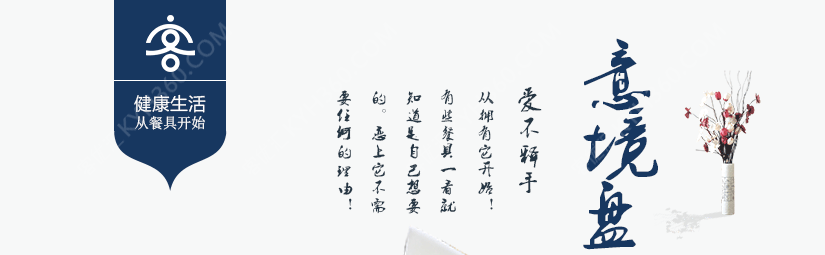 健康生活
从餐具开始
意境盘
爱不释手
从拥有它开始！
有些餐具一看就
知道是自己想要
的。恋上它不需
要任何的理由！